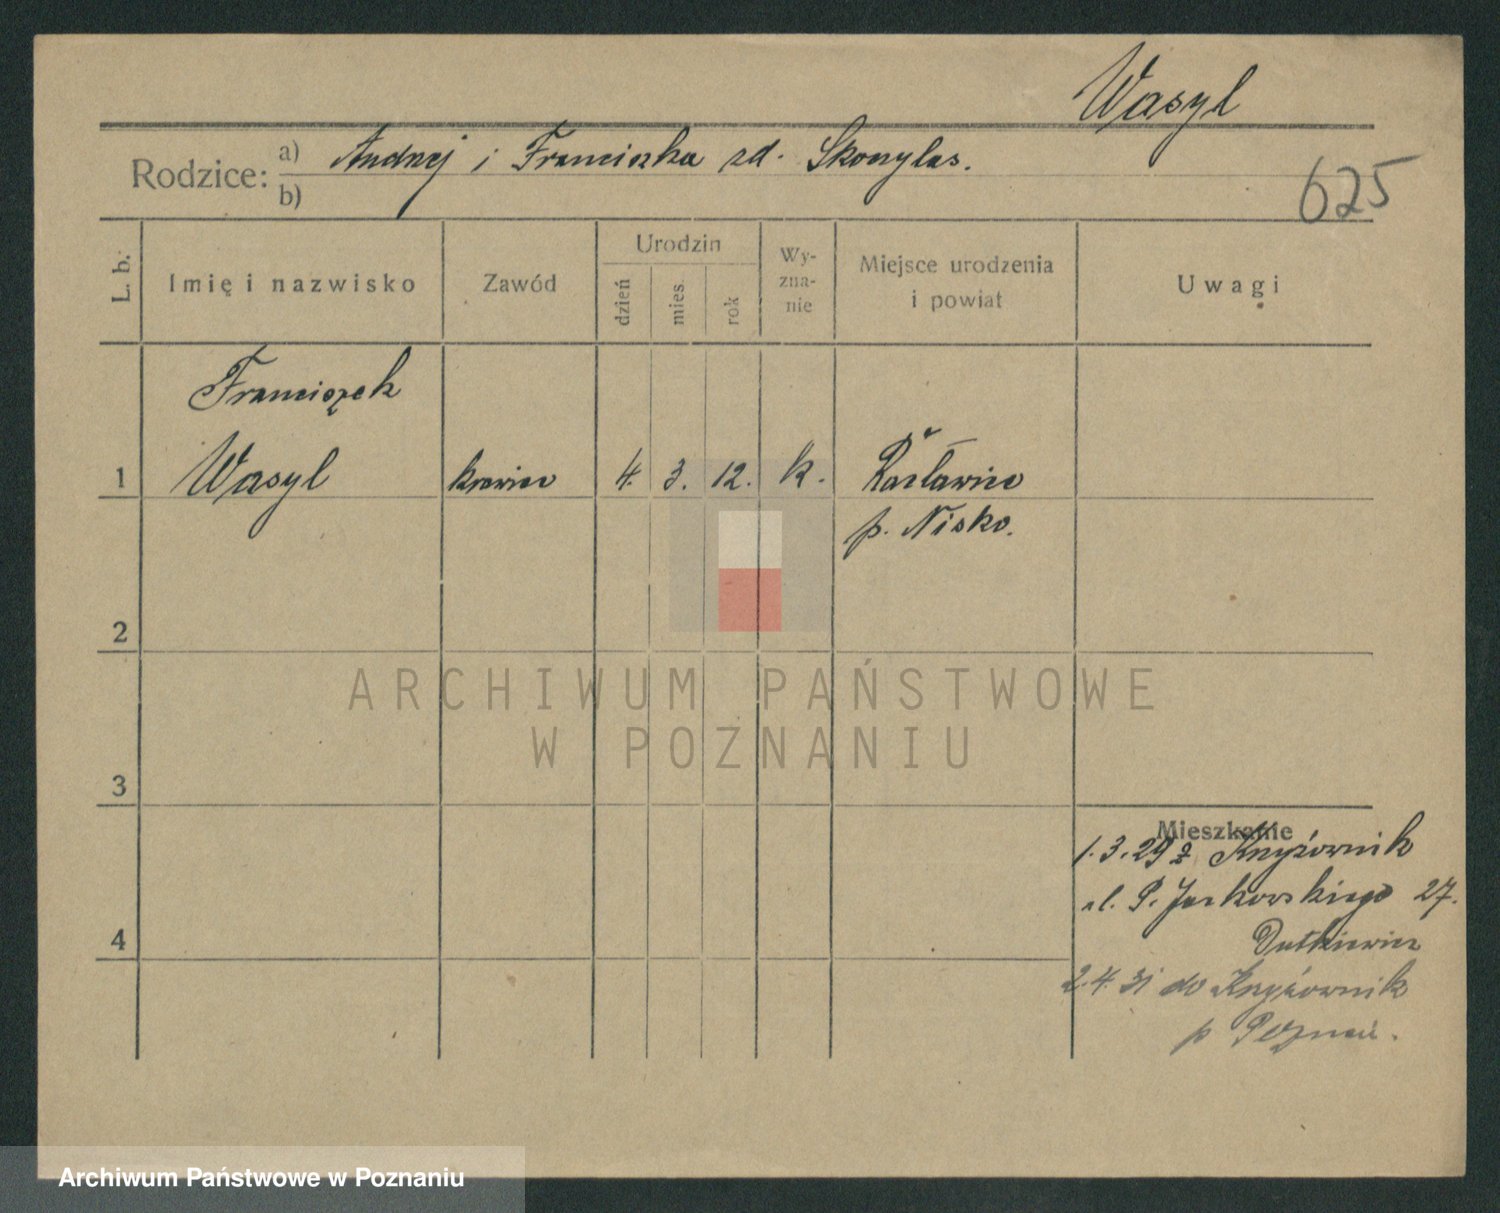 Wasyl
Rodzice: a) Andrzej i Franciszka zd. Skoczylas.
b)
625
L. b. Imię i nazwisko Zawód Urodzin dzień mies. rok Wy-zna-nie Miejsce urodzenia i powiat Uwagi
Franciszek
1 Wasyl krawiec 4. 3. 12. k. Racławice
p. Nisko.
2
ARCHIWUM PAŃSTWOWE
W POZNANIU
3
Mieszkanie
1.3.29 z Krzyżownik
ul. P. Jackowskiego 27.
Dutkiewicz
4
2.4.31 do Krzyżownik
p Poznań.
Archiwum Państwowe w Poznaniu